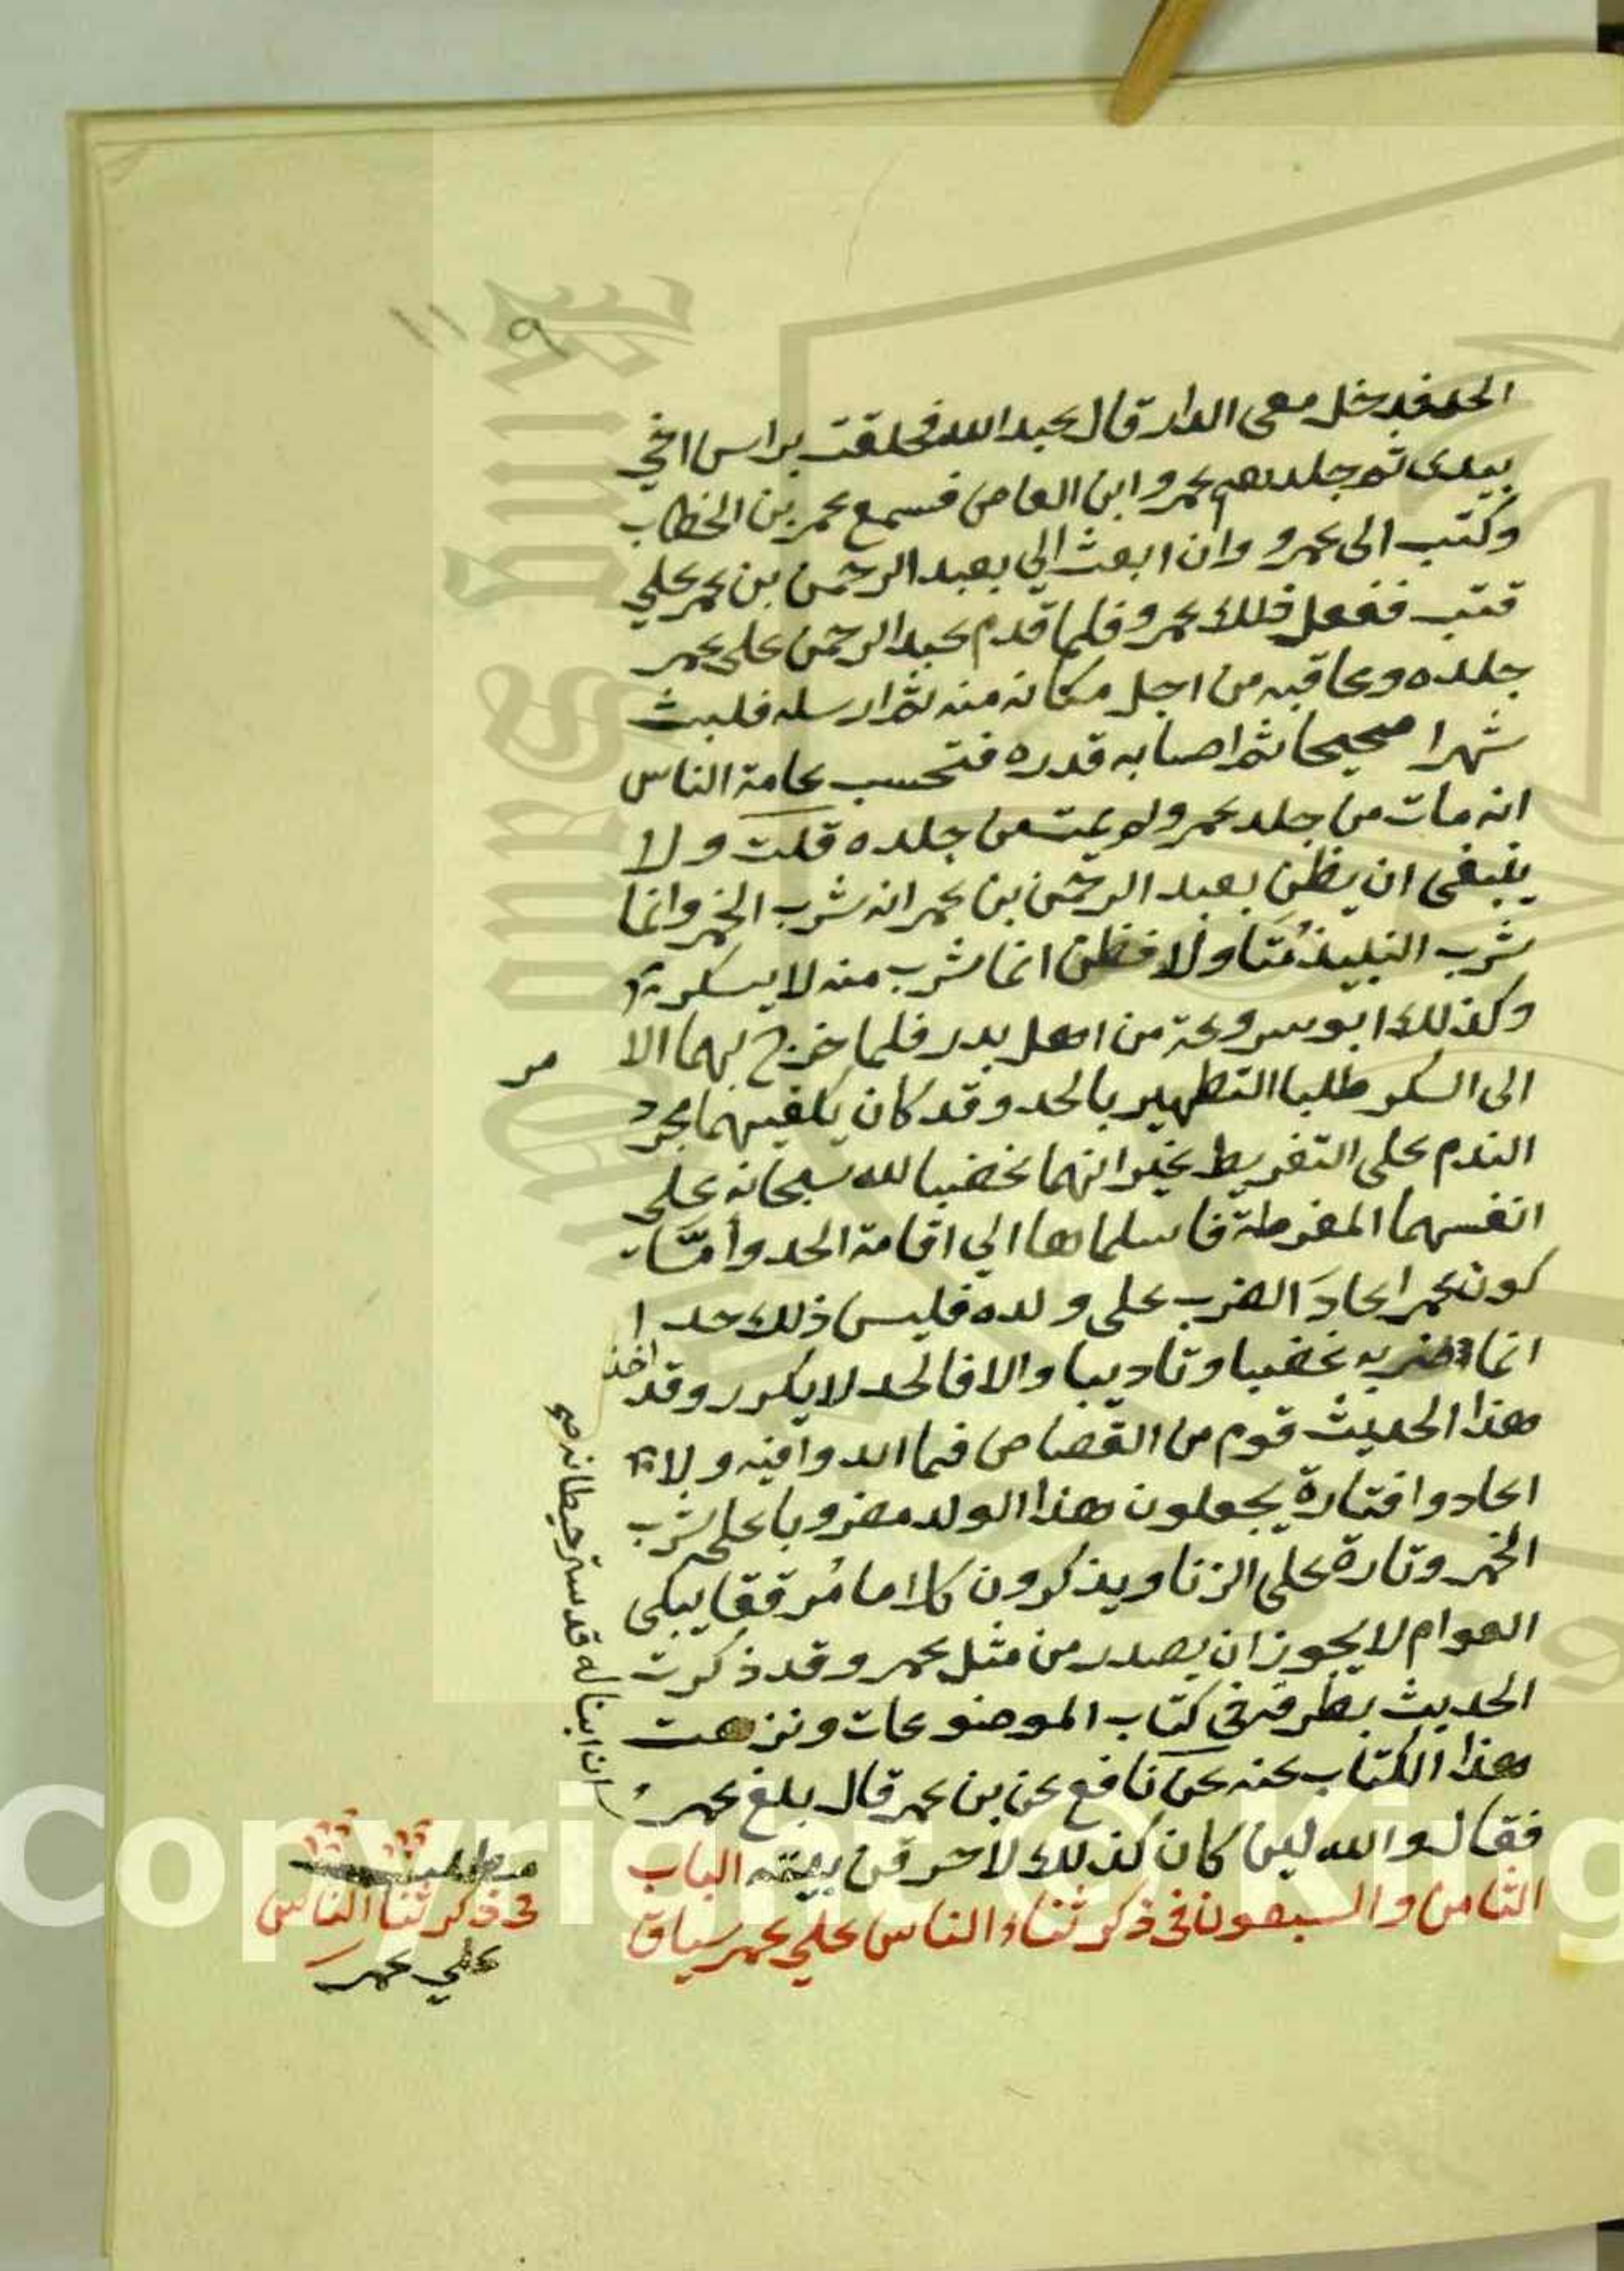 ١١٩
الحد فدخل معي الدار قال عبد الله فحلقت براس اخي
بيدي ثم جلدهم عمرو ابن العاص فسمع عمر بن الخطاب
وكتب الى عمرو وان ابعث الي بعبد الرحمن بن عمر علي
قتب ففعل ذلك عمرو فلما قدم عبد الرحمن على عمر
جلده وعاقبه من اجل مكانه منه ثم ارسله فلبث
شهرا صحيحا ثم اصابه قدره فتحسب عامة الناس
انه مات من جلد عمر ولم يمت من جلده قلت ولا
ينبغي ان يظن بعبد الرحمن بن عمر انه شرب الخمر وانما
شرب النبيذ مُتَاولا فظن انما شرب منه لا يسكر
وكذلك ابو سروعة من اهل بدر فلما خرج بهما الا
مر
الى السكر طلبا التطهير بالحد وقد كان يكفيهما مجرد
الندم على التفريط غير انهما غضبا لله سبحانه على
انفسهما المفرطة فاسلماها الي اقامة الحد وأمّا
كون عمر اعادَ الضرب على ولده فليس ذلك حدا
انما ضربه غضبا وتاديبا والا فالحد لا يكرر وقد اخذ
هذا الحديث قوم من القصاص فما ابدوا فيه ولا
اعادوا فتارة يجعلون هذا الولد مضروبا على شرب
الخمر وتارة على الزنا ويذكرون كلاما مُرققا يبكى
العوام لا يجوز ان يصدر من مثل عمر وقد ذكرت
الحديث بطرقه في كتاب الموضوعات ونزهت
هذا الكتاب عنه عن نافع عن بن عمر قال بلغ عمر
ان ابنا له قد ستر حيطانه صح
فقال والله لين كان كذلك لاحرقن بيته الباب
الثامن والسبعون في ذكر ثناء الناس علي عمر سياق
مطلب
في ذكر ثنا الناس
علي عمر
Copyright © King